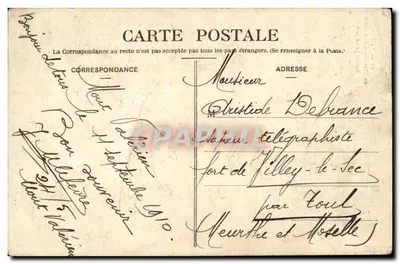 CARTE POSTALE
La Correspondance au recto n'est pas acceptée par tous les pays étrangers. (Se renseigner à la Poste.)
CORRESPONDANCE
ADRESSE
Bonjour de tous
Mont Valérien
le 4 septembre 1910.
Bon souvenir
Lefèvre
24/5
Mont Valérien
Monsieur
Aristide Defrance
sapeur télégraphiste
fort de Villey-le-Sec
par Toul
(Meurthe et Moselle)
CPARAMA